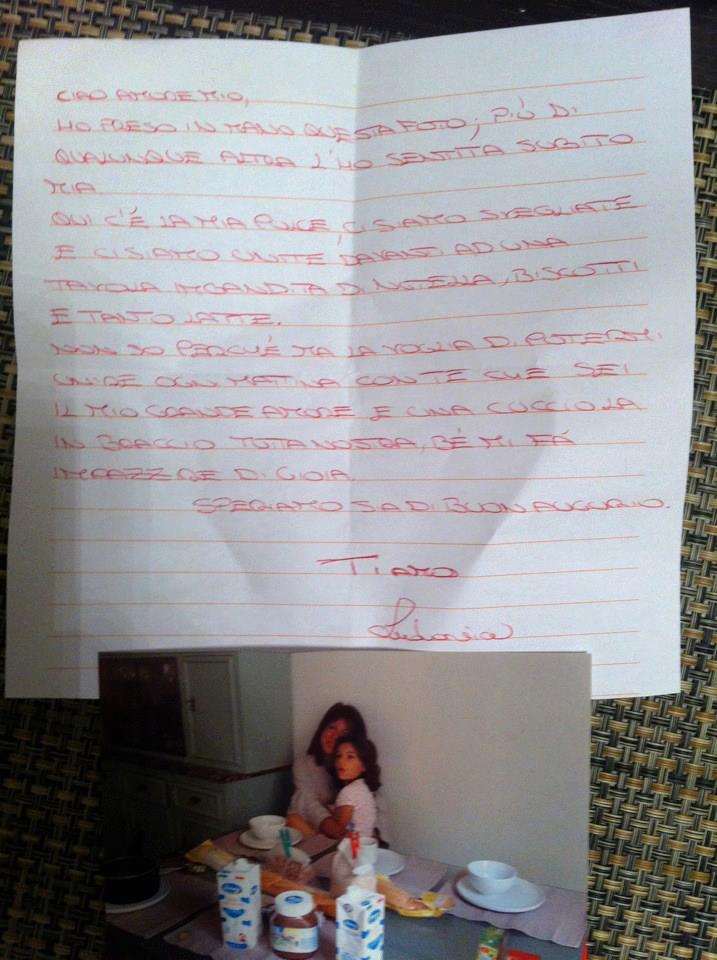 CIAO AMORE MIO,
HO PRESO IN MANO QUESTA FOTO, PIÙ DI
QUALUNQUE ALTRA L'HO SENTITA SUBITO
MIA.
QUI C'È LA MIA PULCE, CI SIAMO SVEGLIATE
E CI SIAMO UNITE DAVANTI AD UNA
TAVOLA IMBANDITA DI NUTELLA, BISCOTTI
E TANTO LATTE.
NON SO PERCHÉ MA LA VOGLIA DI POTERMI
UNIRE OGNI MATTINA CON TE CHE SEI
IL MIO GRANDE AMORE E UNA CUCCIOLA
IN BRACCIO TUTTA NOSTRA, BÉ MI FÀ
IMPAZZIRE DI GIOIA.
SPERIAMO SIA DI BUON AUGURIO.
TI AMO
Ludovica